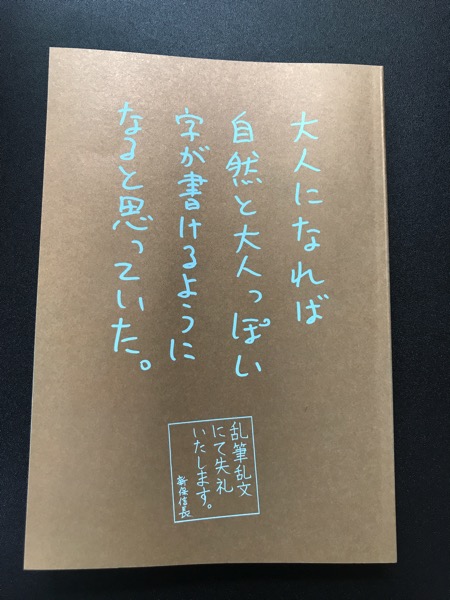 大人になれば
自然と大人っぽい
字が書けるように
なると思っていた。
乱筆乱文
にて失礼
いたします。
新保信長